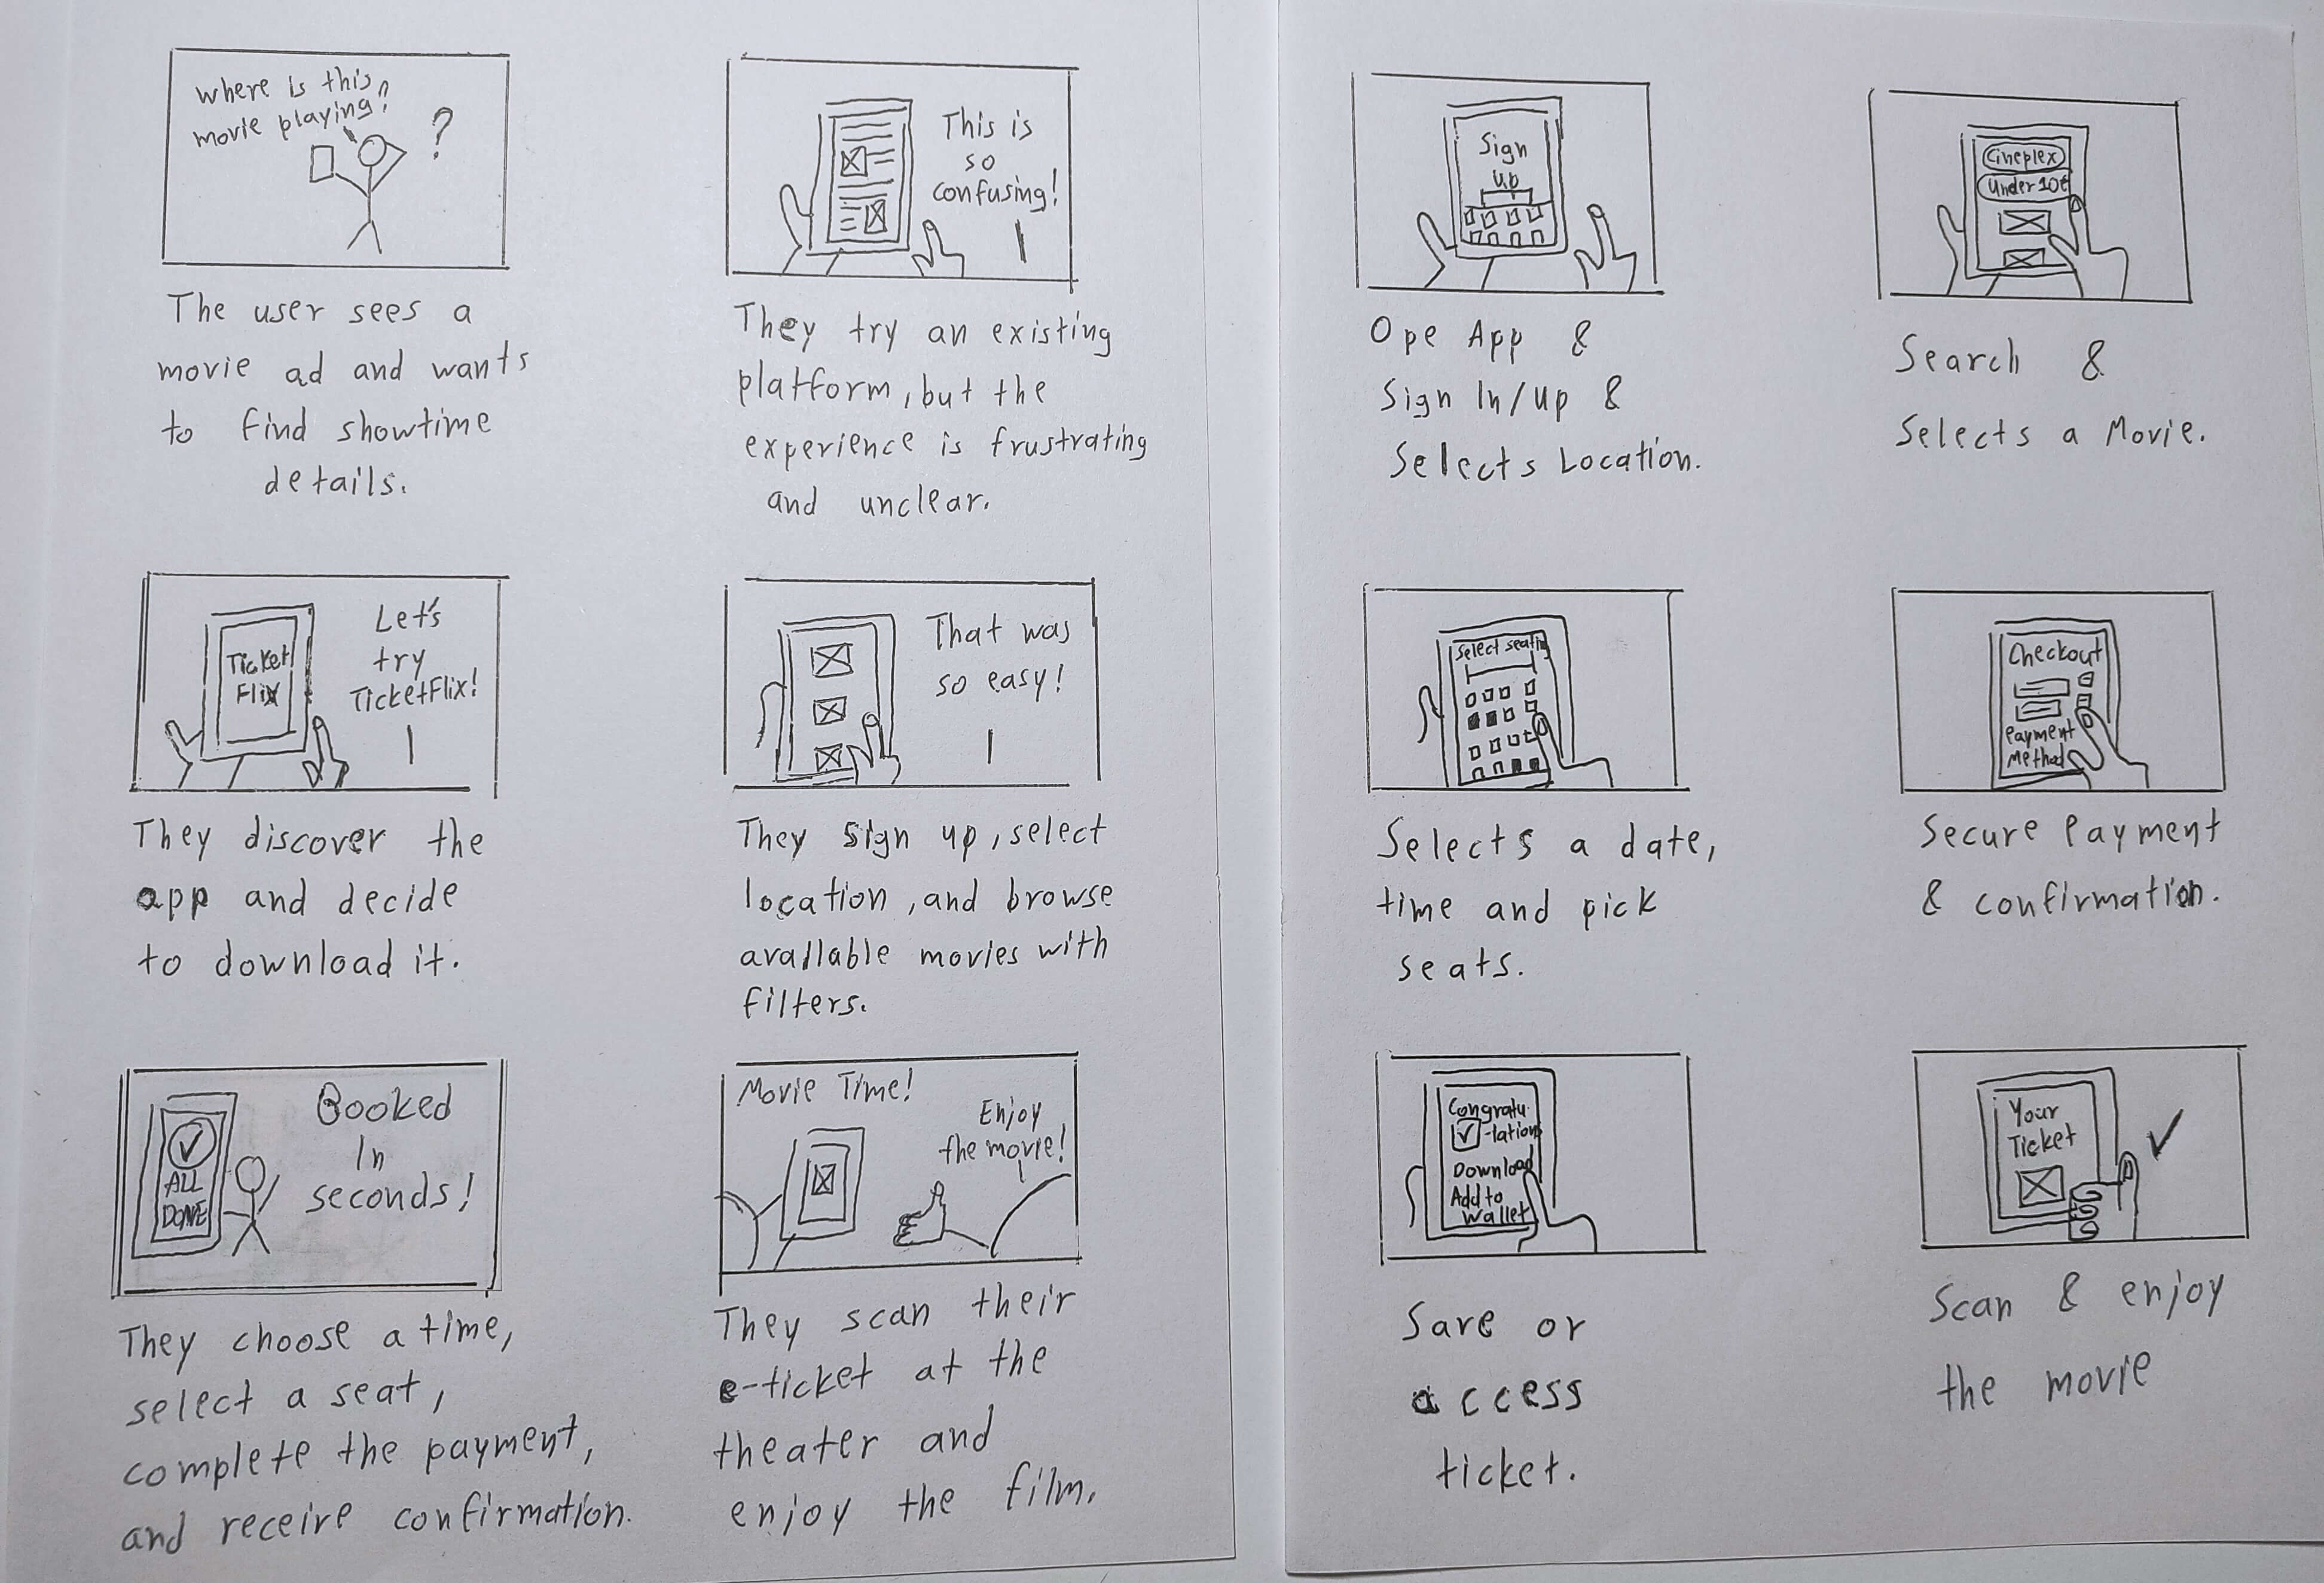 Where is this
movie playing?
?
The user sees a
movie ad and wants
to find showtime
details.
This is
so
confusing!
They try an existing
platform, but the
experience is frustrating
and unclear.
Ticket
Flix
Let's
try
TicketFlix!
They discover the
app and decide
to download it.
That was
so easy!
They sign up, select
location, and browse
available movies with
filters.
ALL
DONE
Booked
In
seconds!
They choose a time,
select a seat,
complete the payment,
and receive confirmation.
Movie Time!
Enjoy
the movie!
They scan their
e-ticket at the
theater and
enjoy the film.
Sign
up
Ope App &
Sign In/up &
Selects Location.
Cineplex
Under 10€
Search &
Selects a Movie.
Select seating
Selects a date,
time and pick
seats.
Checkout
Payment
Method
Secure Payment
& confirmation.
Congratu
-lation
Download
Add to
Wallet
Save or
access
ticket.
Your
Ticket
Scan & enjoy
the movie